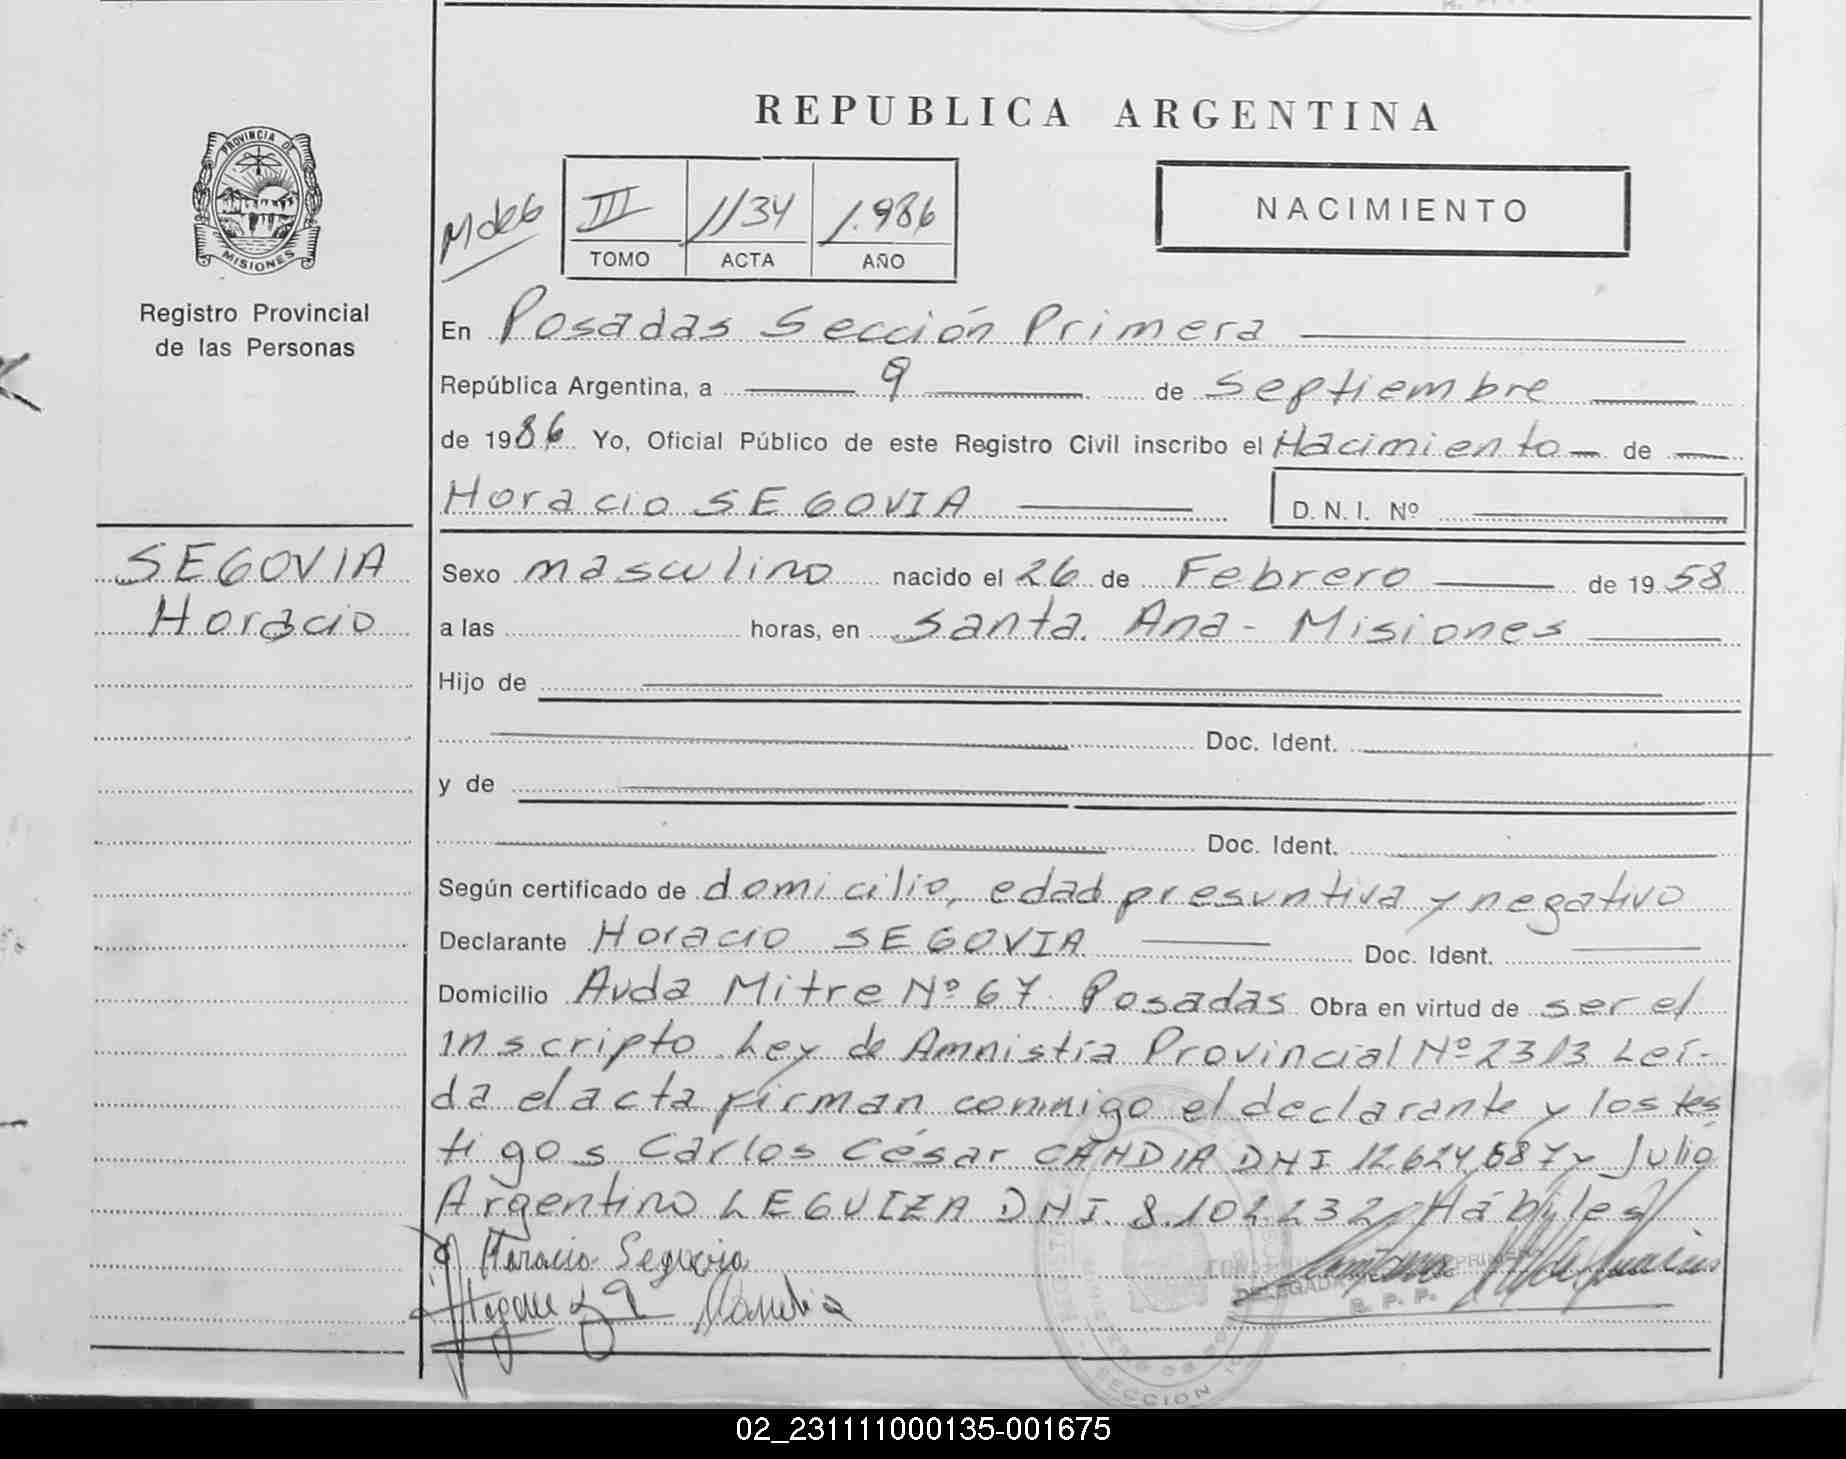 REPUBLICA ARGENTINA
PROVINCIA DE
MISIONES
Registro Provincial
de las Personas
III 1134 1.986
TOMO ACTA AÑO
NACIMIENTO
En Posadas Sección Primera
República Argentina, a 9 de Septiembre
de 1986 Yo, Oficial Público de este Registro Civil inscribo el Nacimiento de
Horacio SEGOVIA D.N.I. Nº
SEGOVIA
Horacio
Sexo masculino nacido el 26 de Febrero de 1958
a las horas, en Santa Ana - Misiones
Hijo de
Doc. Ident.
y de
Doc. Ident.
Según certificado de domicilio, edad presuntiva y negativo
Declarante Horacio SEGOVIA Doc. Ident.
Domicilio Avda Mitre Nº 67 Posadas Obra en virtud de ser el
inscripto. Ley de Amnistía Provincial Nº 2313 Leí-
da el acta firman conmigo el declarante y los tes
tigos Carlos César CANDIA DNI 12.624.687 y Julio
Argentino LEGUIZA DNI. 8.102.232 Hábiles
Horacio Segovia
Candia
DELEGADA
R. P. P.
SECCION 1
02_231111000135-001675